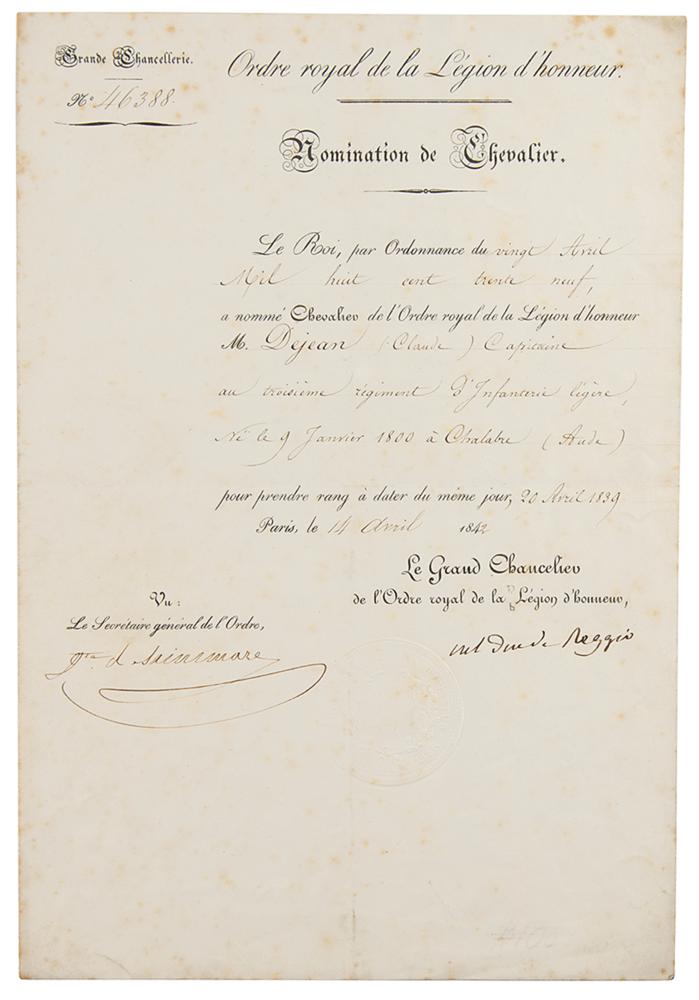 Grande Chancellerie.
N° 46388.
Ordre royal de la Légion d'honneur.
Nomination de Chevalier.
Le Roi, par Ordonnance du vingt Avril
Mil huit cent trente neuf,
a nommé Chevalier de l'Ordre royal de la Légion d'honneur
M. Dejean (Claude) Capitaine
au troisième régiment d'Infanterie légère,
Né le 9 Janvier 1800 à Chalabre (Aude)
pour prendre rang à dater du même jour, 20 Avril 1839
Paris, le 14 avril 1842
Le Grand Chancelier
de l'Ordre royal de la Légion d'honneur,
Mal Duc de Reggio
Vu:
Le Secrétaire général de l'Ordre,